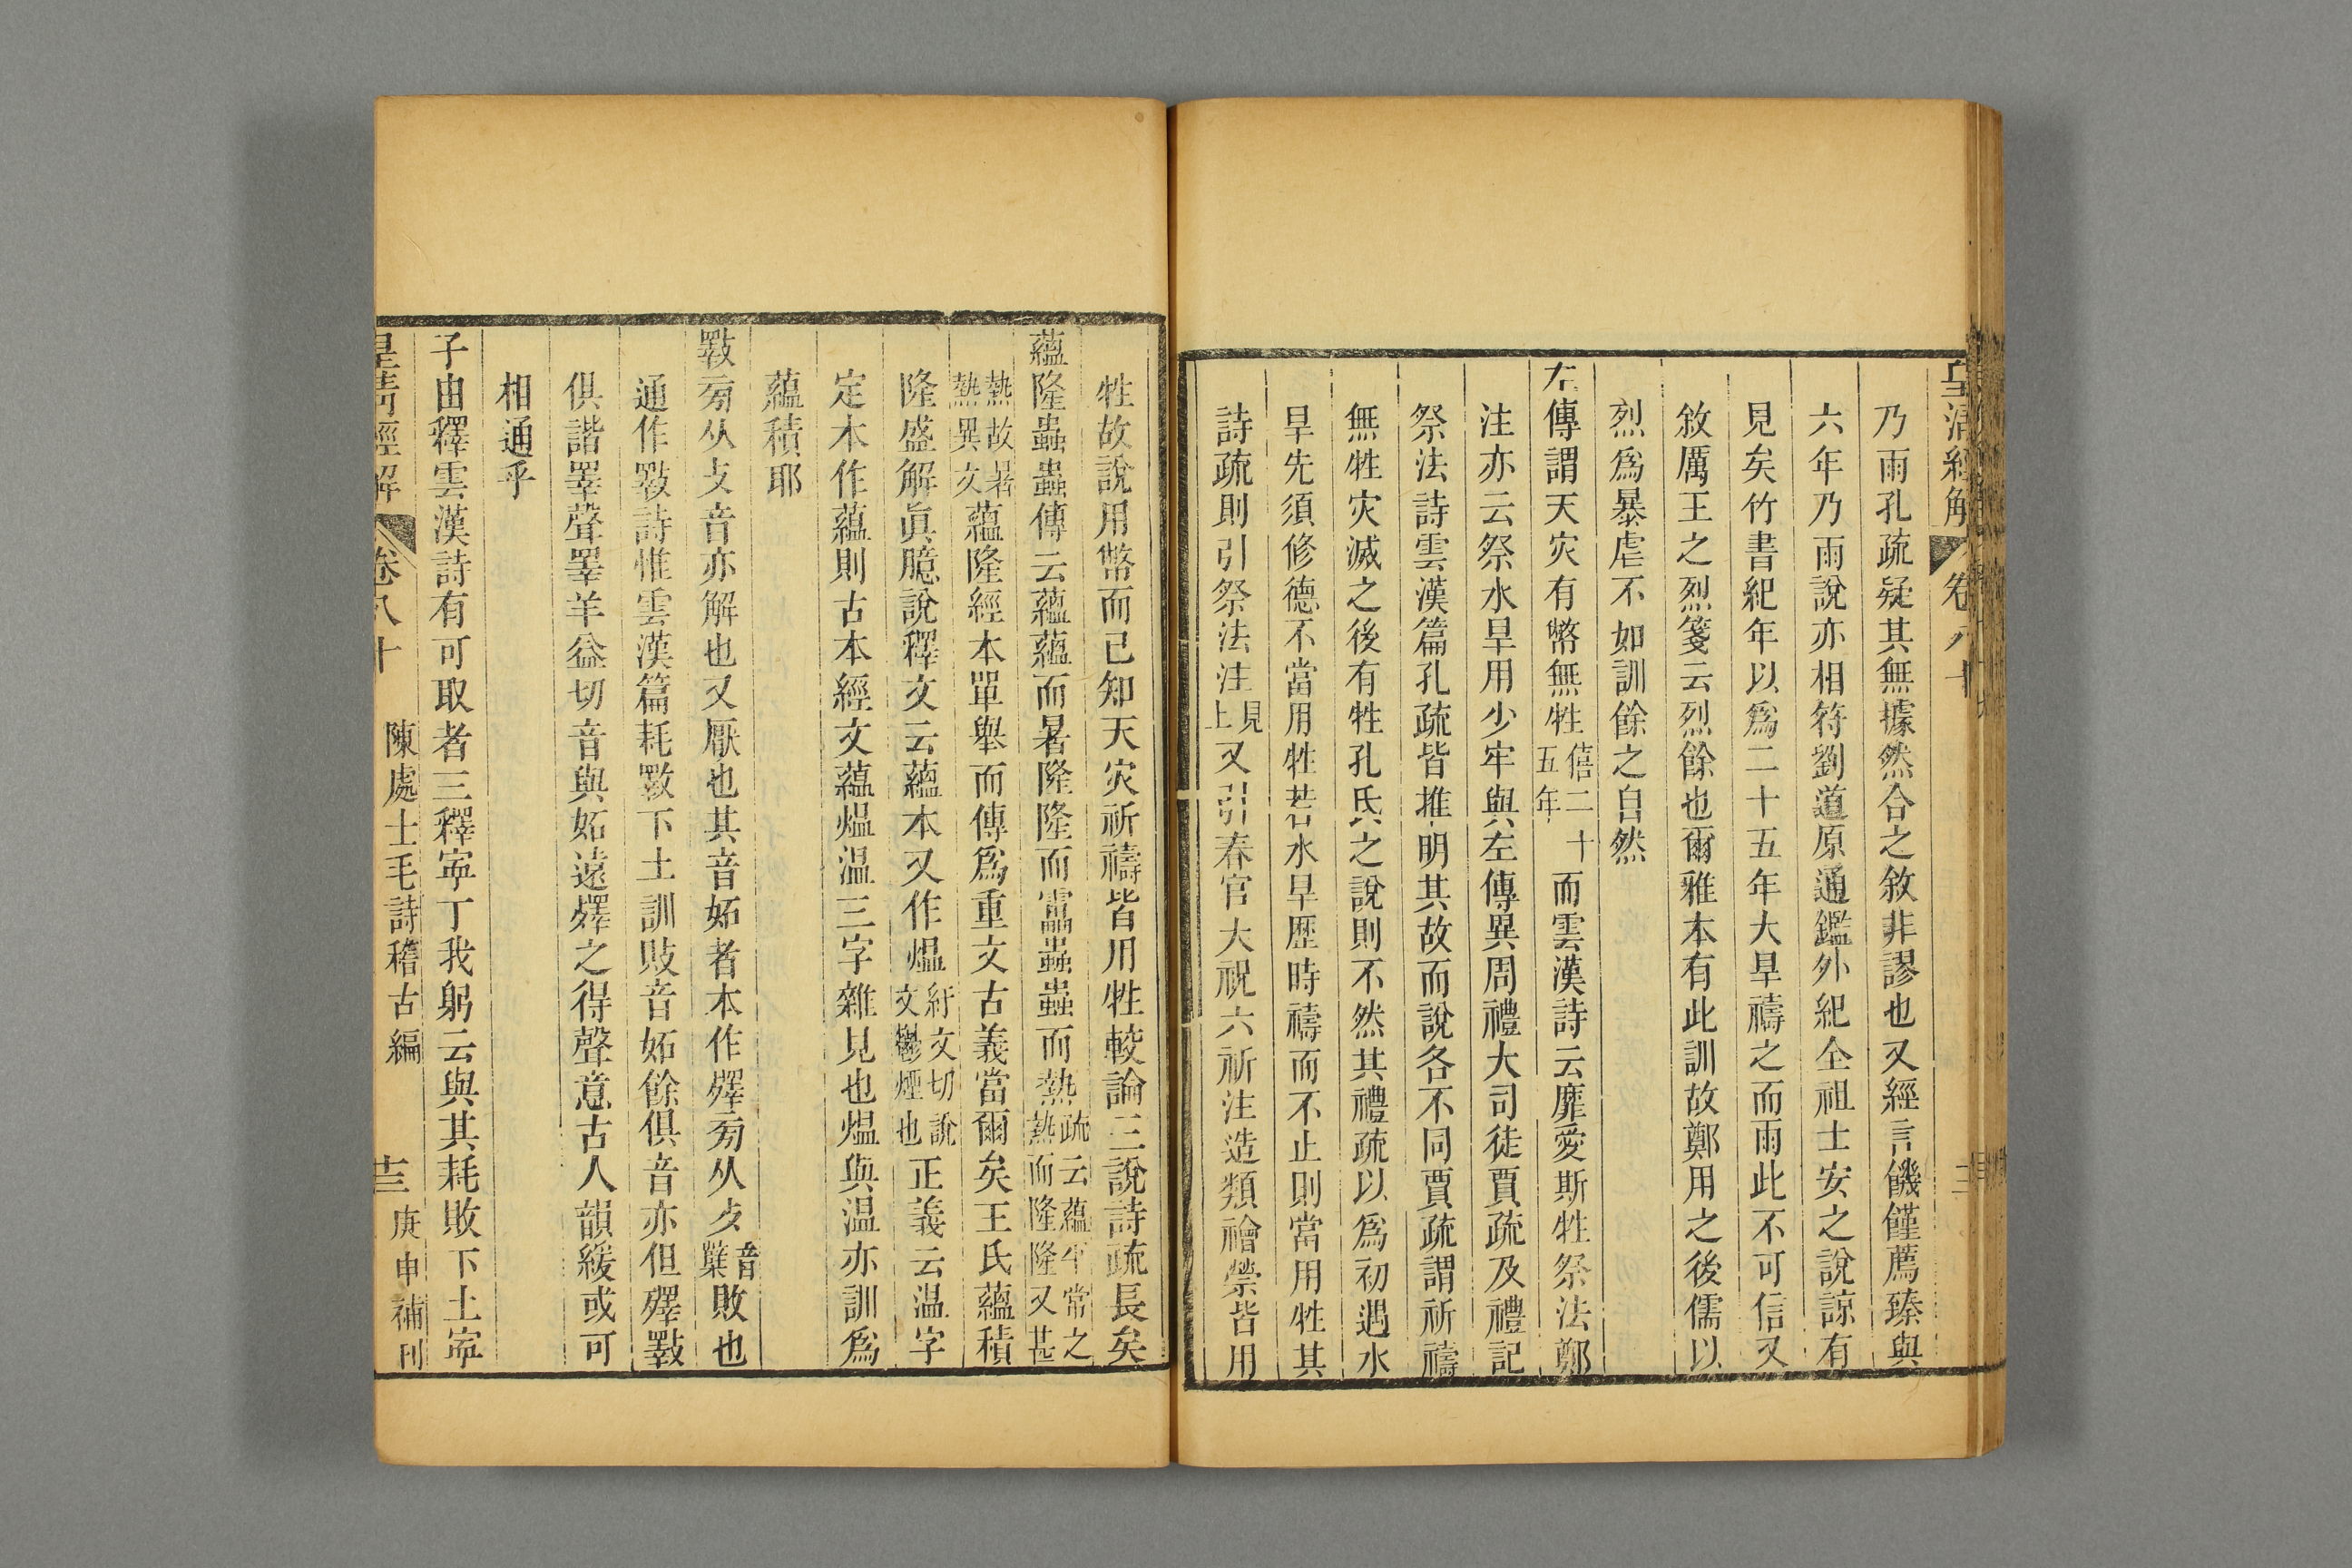 皇清經解 卷八十
乃雨孔疏疑其無據然合之敘非謬也又經言饑僅薦臻與
六年乃雨說亦相符劉道原通鑑外紀全祖士安之說諒有
見矣竹書紀年以爲二十五年大旱禱之而雨此不可信又
敘厲王之烈箋云烈餘也爾雅本有此訓故鄭用之後儒以
烈爲暴虐不如訓餘之自然
左傳謂天灾有幣無牲僖二十五年而雲漢詩云靡愛斯牲祭法鄭
注亦云祭水旱用少牢與左傳異周禮大司徒賈疏及禮記
祭法詩雲漢篇孔疏皆推明其故而說各不同賈疏謂祈禱
無牲灾滅之後有牲孔氏之說則不然其禮疏以爲初遇水
旱先須修德不當用牲若水旱歷時禱而不止則當用牲其
詩疏則引祭法注見上又引春官大祝六祈注造類禬禜皆用
牲故說用幣而已知天灾祈禱皆用牲較論三說詩疏長矣
蘊隆蟲蟲傳云蘊蘊而暑隆隆而靁蟲蟲而熱疏云蘊平常之熱而隆隆又甚
熱故暑熱異文蘊隆經本單舉而傳爲重文古義當爾矣王氏蘊積
隆盛解眞臆說釋文云蘊本又作熅紆文切說文鬱煙也正義云温字
定本作蘊則古本經文蘊熅温三字雜見也熅與温亦訓爲
蘊積耶
斁㫄从攴音亦解也又厭也其音妬者本作殬㫄从歺音櫱敗也
通作斁詩惟雲漢篇耗斁下土訓敗音妬餘俱音亦但殬斁
俱諧睪聲睪羊益切音與妬遠殬之得聲意古人韻緩或可
相通乎
子由釋雲漢詩有可取者三釋寧丁我躬云與其耗敗下土寧
皇清經解 卷八十 陳處士毛詩稽古編 十三 庚申補刊